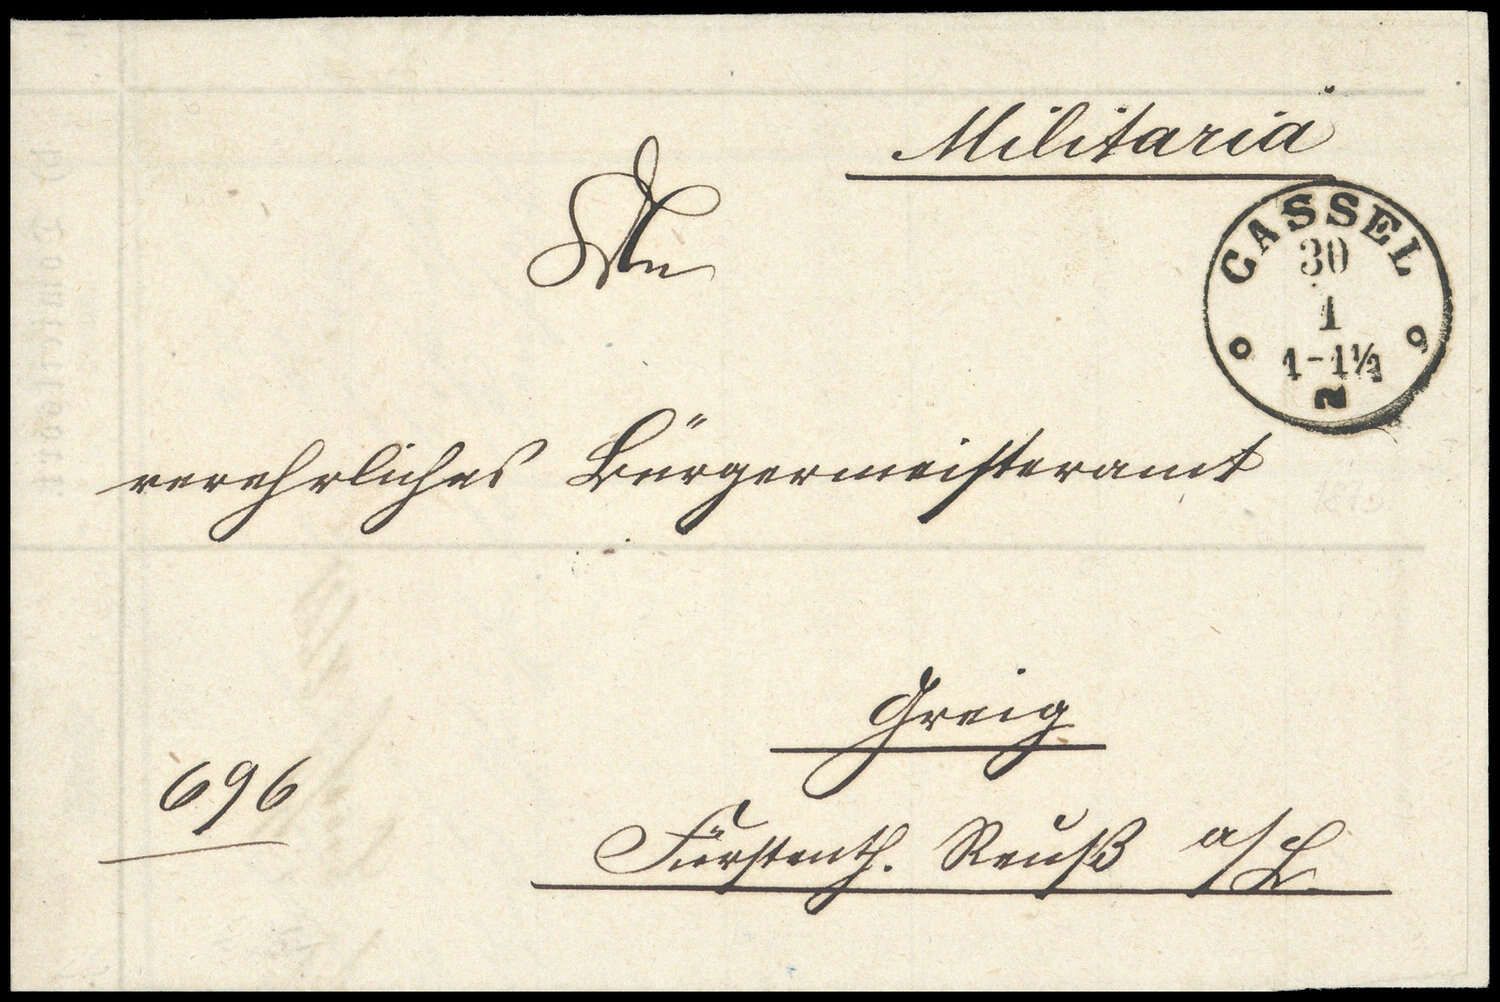 Militaria
CASSEL
30
1
1-1½
2
An
verehrliches Bürgermeisteramt
Greiz
696
Fürstenth. Reuß a/L.